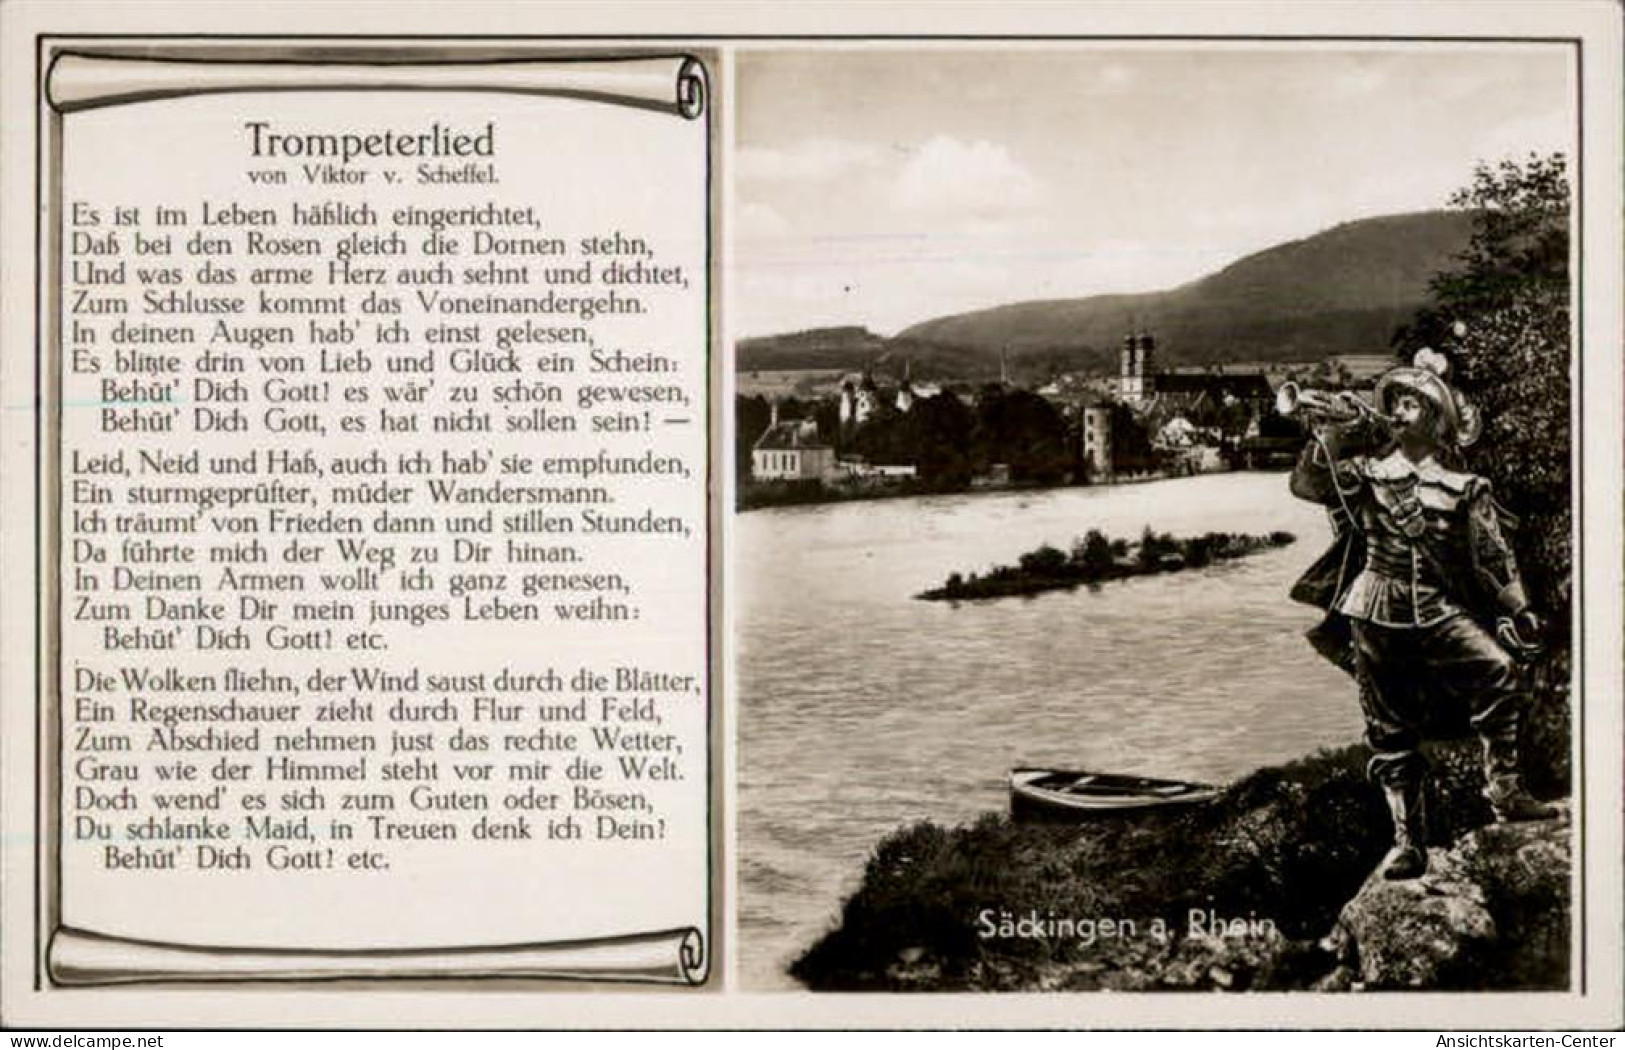 Trompeterlied
von Viktor v. Scheffel.
Es ist im Leben häßlich eingerichtet,
Daß bei den Rosen gleich die Dornen stehn,
Und was das arme Herz auch sehnt und dichtet,
Zum Schlusse kommt das Voneinandergehn.
In deinen Augen hab' ich einst gelesen,
Es blitzte drin von Lieb und Glück ein Schein:
Behüt' Dich Gott! es wär' zu schön gewesen,
Behüt' Dich Gott, es hat nicht sollen sein! —
Leid, Neid und Haß, auch ich hab' sie empfunden,
Ein sturmgeprüfter, müder Wandersmann.
Ich träumt' von Frieden dann und stillen Stunden,
Da führte mich der Weg zu Dir hinan.
In Deinen Armen wollt' ich ganz genesen,
Zum Danke Dir mein junges Leben weihn:
Behüt' Dich Gott! etc.
Die Wolken fliehn, der Wind saust durch die Blätter,
Ein Regenschauer zieht durch Flur und Feld,
Zum Abschied nehmen just das rechte Wetter,
Grau wie der Himmel steht vor mir die Welt.
Doch wend' es sich zum Guten oder Bösen,
Du schlanke Maid, in Treuen denk ich Dein!
Behüt' Dich Gott! etc.
Säckingen a. Rhein
www.delcampe.net
Ansichtskarten-Center